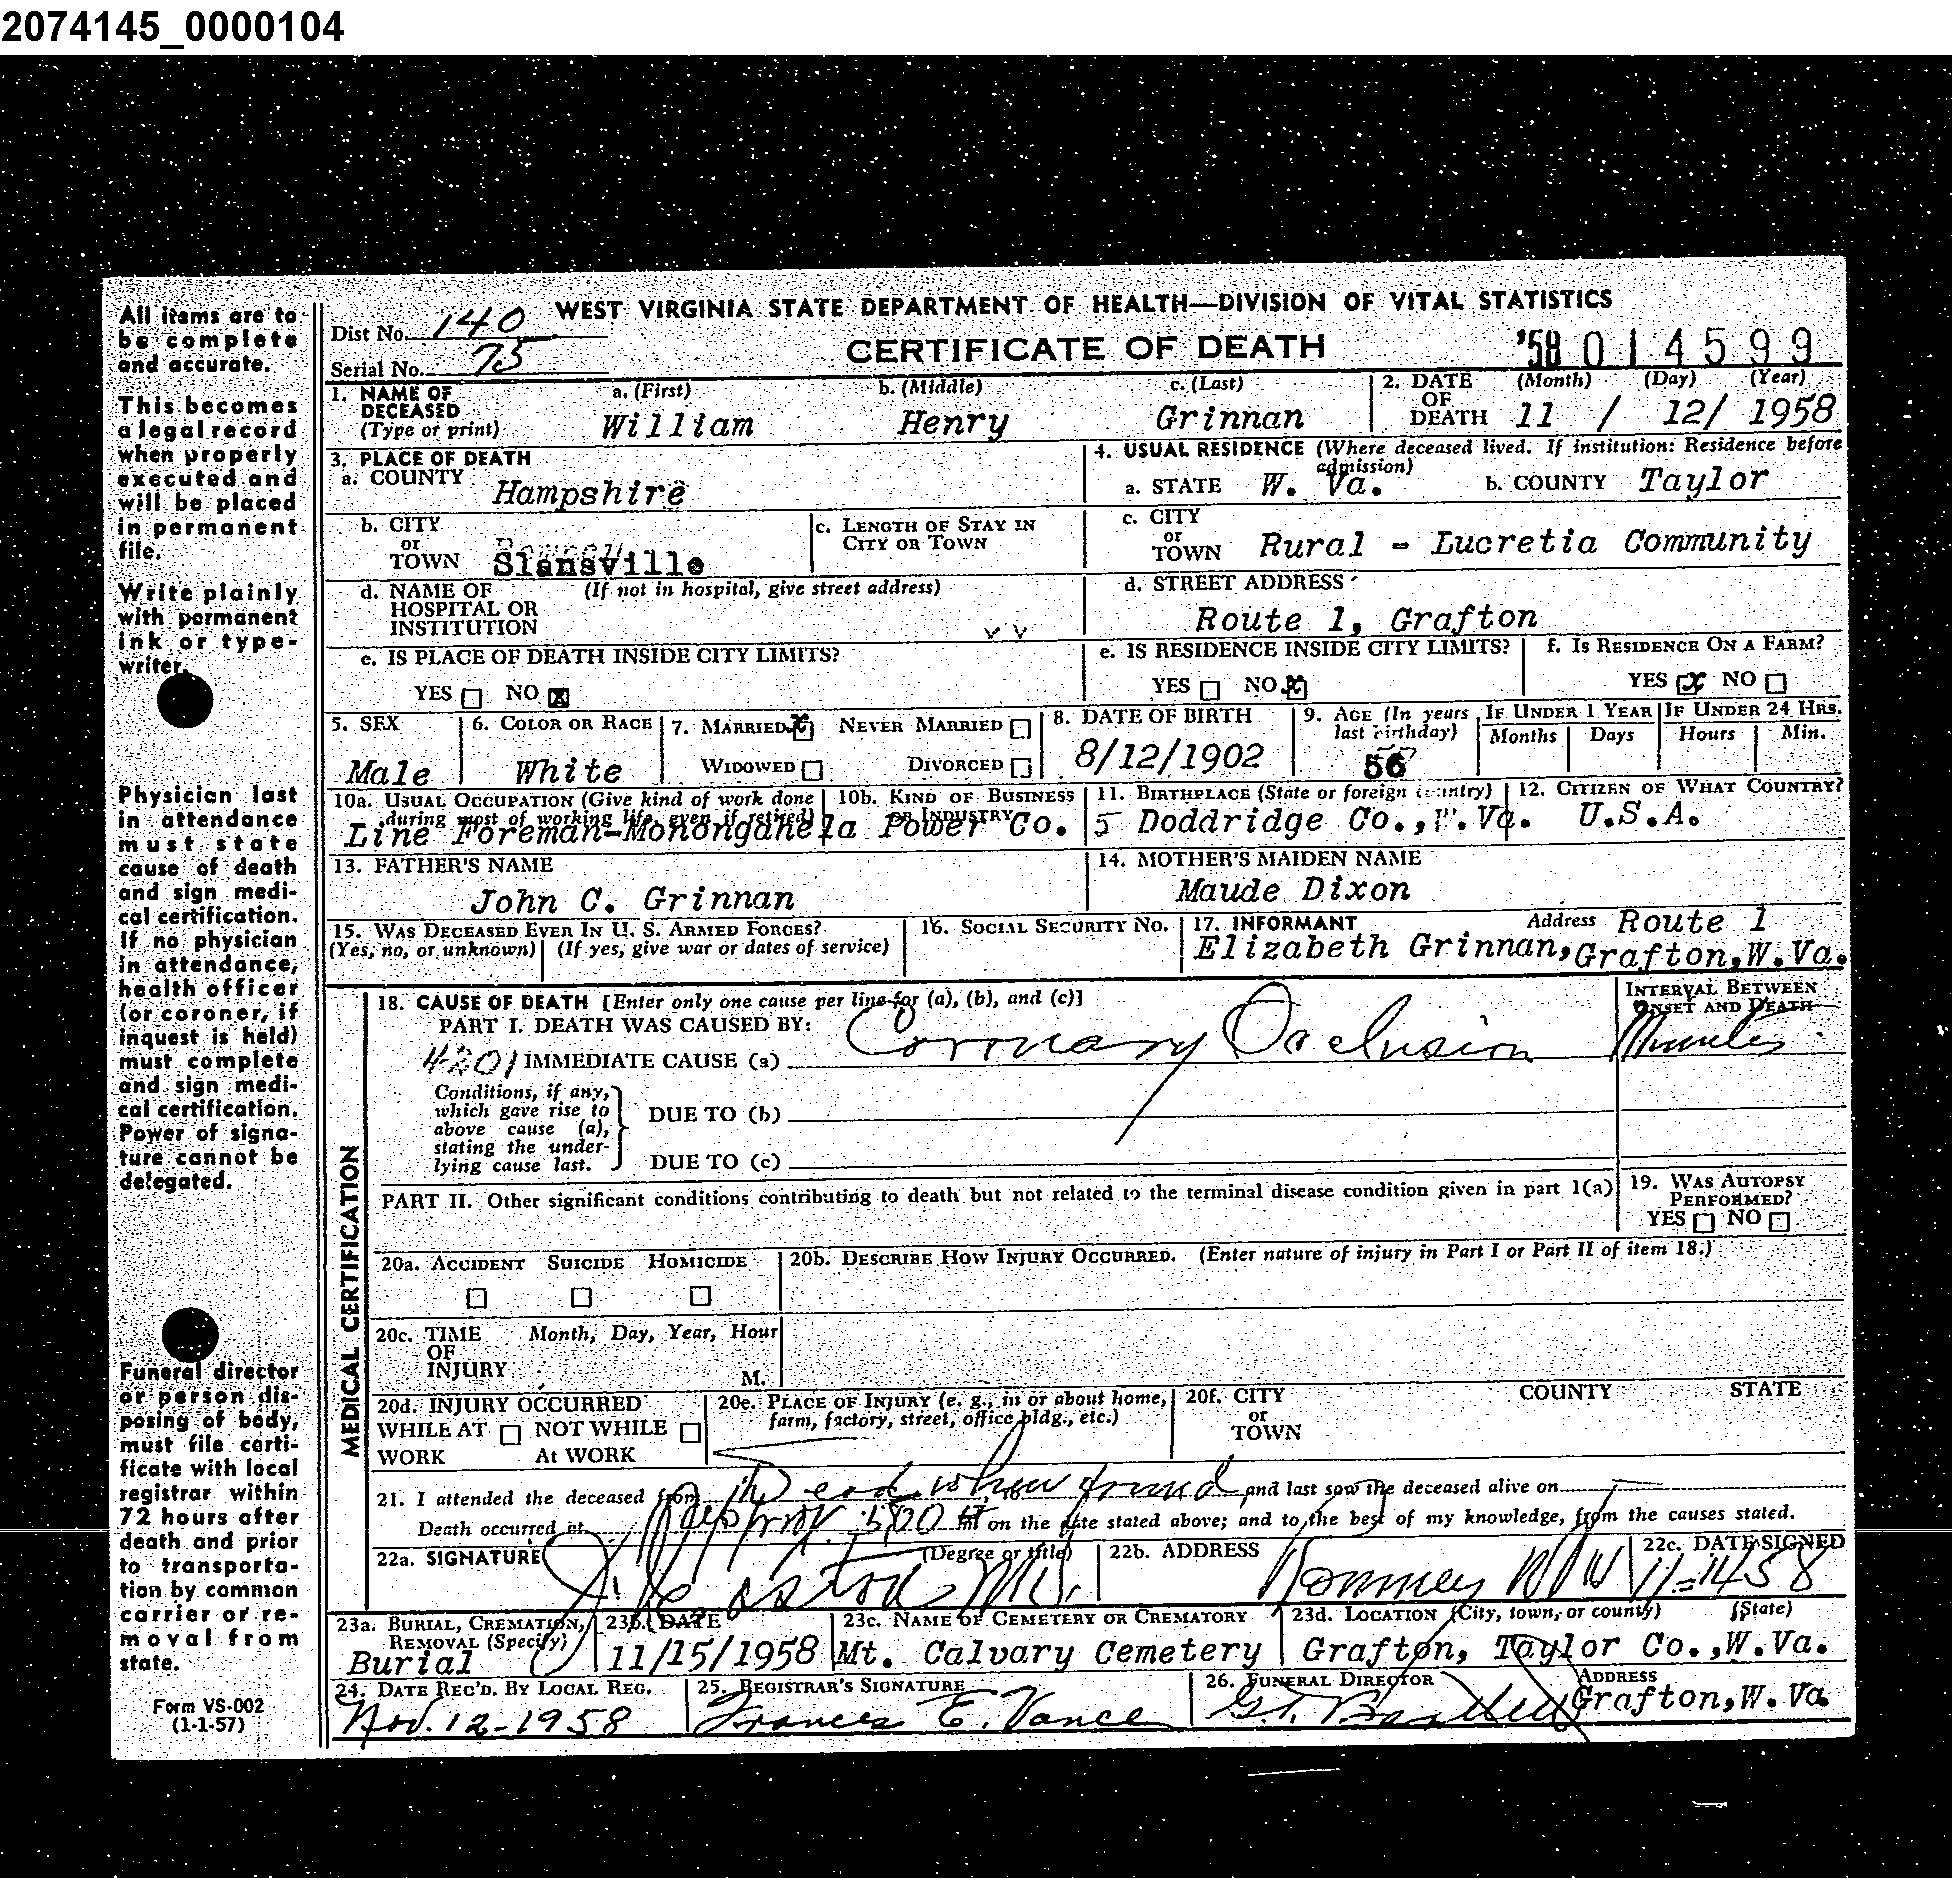 2074145_0000104
All items are to
be complete
and accurate.
This becomes
a legal record
when properly
executed and
will be placed
in permanent
file.
Write plainly
with permanent
ink or type-
writer.
Physician last
in attendance
must state
cause of death
and sign medi-
cal certification.
If no physician
in attendance,
health officer
(or coroner, if
inquest is held)
must complete
and sign medi-
cal certification.
Power of signa-
ture cannot be
delegated.
Funeral director
or person dis-
posing of body,
must file certi-
ficate with local
registrar within
72 hours after
death and prior
to transporta-
tion by common
carrier or re-
moval from
state.
Form VS-002
(1-1-57)
WEST VIRGINIA STATE DEPARTMENT OF HEALTH—DIVISION OF VITAL STATISTICS
Dist No. 140
CERTIFICATE OF DEATH '58 014599
Serial No. 75
1. NAME OF DECEASED (Type or print) a. (First) b. (Middle) c. (Last)
William Henry Grinnan
2. DATE OF DEATH (Month) (Day) (Year)
11 / 12/ 1958
3. PLACE OF DEATH
a. COUNTY Hampshire
4. USUAL RESIDENCE (Where deceased lived. If institution: Residence before admission)
a. STATE W. Va. b. COUNTY Taylor
b. CITY or TOWN Slansville
c. LENGTH OF STAY IN CITY OR TOWN
c. CITY or TOWN Rural - Lucretia Community
d. NAME OF HOSPITAL OR INSTITUTION (If not in hospital, give street address)
d. STREET ADDRESS
Route 1, Grafton
e. IS PLACE OF DEATH INSIDE CITY LIMITS?
YES NO X
e. IS RESIDENCE INSIDE CITY LIMITS?
YES NO X
f. IS RESIDENCE ON A FARM?
YES X NO
5. SEX
Male
6. COLOR OR RACE
White
7. MARRIED X NEVER MARRIED
WIDOWED DIVORCED
8. DATE OF BIRTH
8/12/1902
9. AGE (In years last birthday)
56
IF UNDER 1 YEAR
Months Days
IF UNDER 24 HRS.
Hours Min.
10a. USUAL OCCUPATION (Give kind of work done during most of working life, even if retired)
10b. KIND OF BUSINESS OR INDUSTRY
Line Foreman-Monongahela Power Co.
11. BIRTHPLACE (State or foreign country)
5 Doddridge Co.,W.Va.
12. CITIZEN OF WHAT COUNTRY?
U.S.A.
13. FATHER'S NAME
John C. Grinnan
14. MOTHER'S MAIDEN NAME
Maude Dixon
15. WAS DECEASED EVER IN U. S. ARMED FORCES?
(Yes, no, or unknown) (If yes, give war or dates of service)
16. SOCIAL SECURITY NO.
17. INFORMANT Address Route 1
Elizabeth Grinnan, Grafton,W.Va.
MEDICAL CERTIFICATION
18. CAUSE OF DEATH [Enter only one cause per line for (a), (b), and (c)]
PART I. DEATH WAS CAUSED BY:
4201 IMMEDIATE CAUSE (a) Coronary Occlusion
INTERVAL BETWEEN ONSET AND DEATH
Minutes
Conditions, if any, which gave rise to above cause (a), stating the under-lying cause last.
DUE TO (b)
DUE TO (c)
PART II. Other significant conditions contributing to death but not related to the terminal disease condition given in part 1(a)
19. WAS AUTOPSY PERFORMED?
YES NO
20a. ACCIDENT SUICIDE HOMICIDE
20b. DESCRIBE HOW INJURY OCCURRED. (Enter nature of injury in Part I or Part II of item 18.)
20c. TIME OF INJURY Month, Day, Year, Hour
M.
20d. INJURY OCCURRED
WHILE AT WORK NOT WHILE At WORK
20e. PLACE OF INJURY (e. g., in or about home, farm, factory, street, office bldg., etc.)
20f. CITY or TOWN COUNTY STATE
21. I attended the deceased from Dead when found and last saw the deceased alive on
Death occurred at Approx. 500 on the date stated above; and to the best of my knowledge, from the causes stated.
22a. SIGNATURE (Degree or title)
22b. ADDRESS
Romney
22c. DATE SIGNED
11-14-58
23a. BURIAL, CREMATION, REMOVAL (Specify)
Burial
23b. DATE
11/15/1958
23c. NAME OF CEMETERY OR CREMATORY
Mt. Calvary Cemetery
23d. LOCATION (City, town, or county) (State)
Grafton, Taylor Co.,W.Va.
24. DATE REC'D. BY LOCAL REG.
Nov. 12-1958
25. REGISTRAR'S SIGNATURE
Frances E. Vance
26. FUNERAL DIRECTOR ADDRESS
Grafton,W.Va